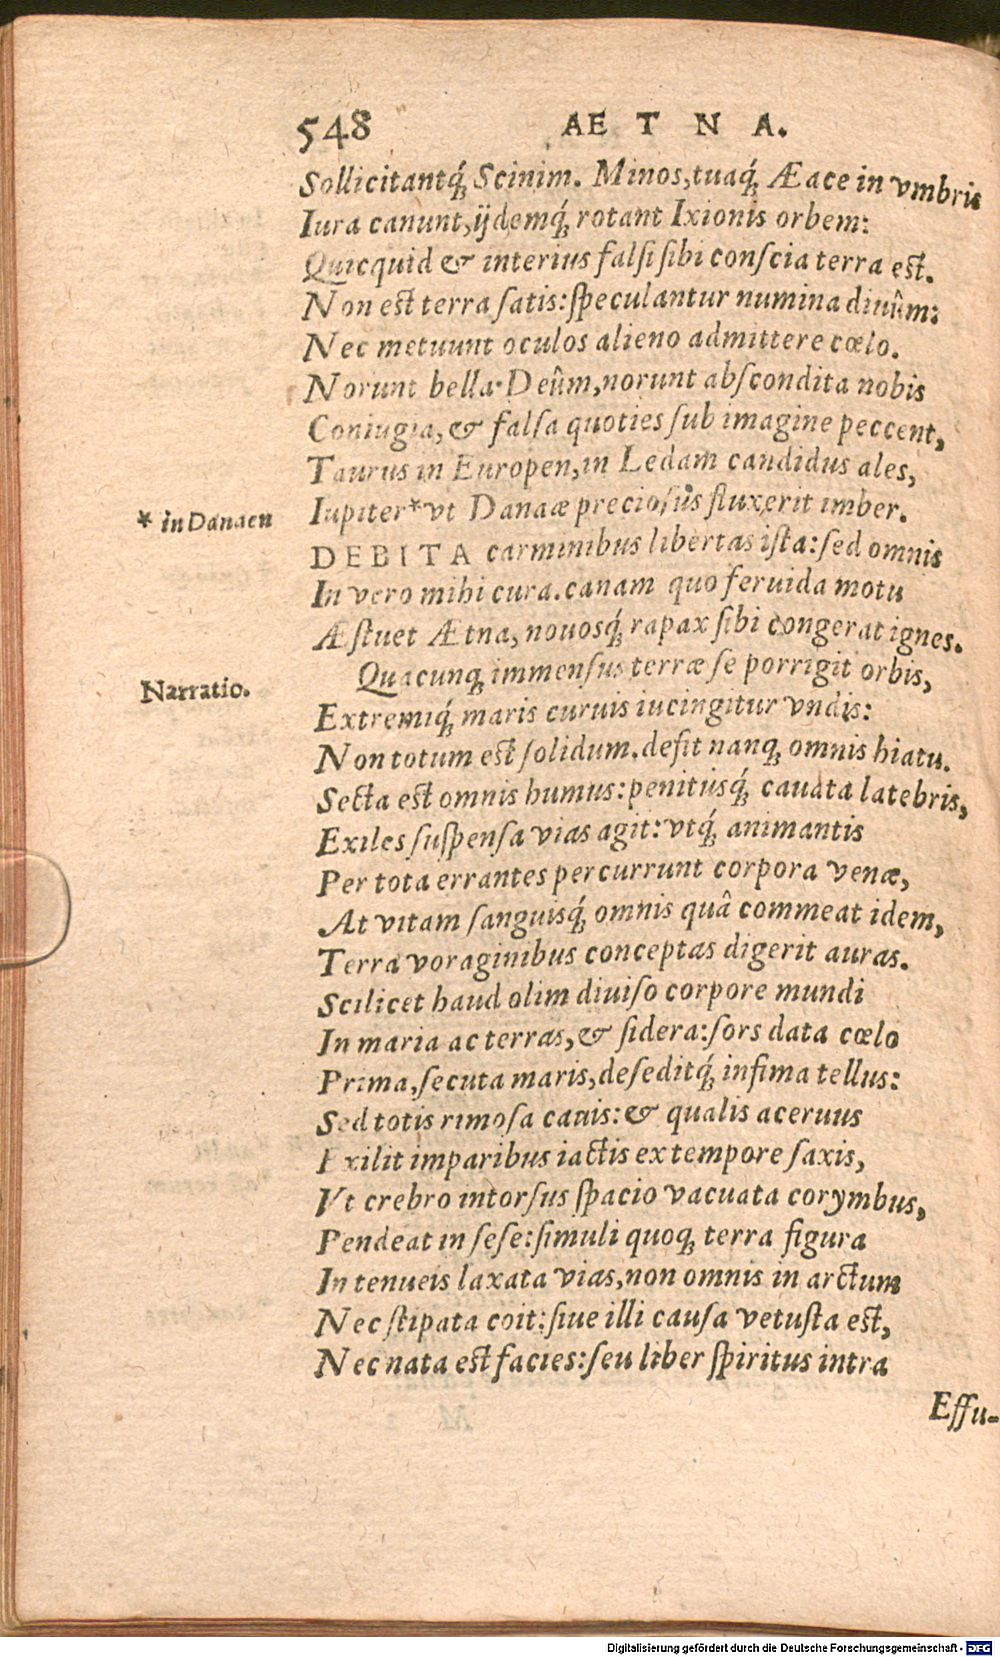 548 AETNA.
Sollicitantq́; Scinim. Minos, tuaq́; Æace in vmbris
Iura canunt, ijdemq́; rotant Ixionis orbem:
Quicquid & interius falsi sibi conscia terra est.
Non est terra satis: speculantur numina diuûm:
Nec metuunt oculos alieno admittere cœlo.
Norunt bella Deûm, norunt abscondita nobis
Coniugia, & falsa quoties sub imagine peccent,
Taurus in Europen, in Ledam candidus ales,
* in Danaen
Iupiter * vt Danaæ preciosus fluxerit imber.
DEBITA carminibus libertas ista: sed omnis
In vero mihi cura. canam quo feruida motu
Æstuet Ætna, nouosq́; rapax sibi congerat ignes.
Narratio.
Quacunq; immensus terræ se porrigit orbis,
Extremiq́; maris curuis iucingitur vndis:
Non totum est solidum. desit nanq; omnis hiatu.
Secta est omnis humus: penitusq́; cauata latebris,
Exiles suspensa vias agit: vtq́; animantis
Per tota errantes percurrunt corpora venæ,
At vitam sanguisq́; omnis quâ commeat idem,
Terra voraginibus conceptas digerit auras.
Scilicet haud olim diuiso corpore mundi
In maria ac terras, & sidera: sors data cœlo
Prima, secuta maris, deseditq́; infima tellus:
Sed totis rimosa cauis: & qualis aceruus
Exilit imparibus iactis ex tempore saxis,
Vt crebro intorsus spacio vacuata corymbus,
Pendeat in sese: simuli quoq; terra figura
In tenueis laxata vias, non omnis in arctum
Nec stipata coit: siue illi causa vetusta est,
Nec nata est facies: seu liber spiritus intra
Effu-
Digitalisierung gefördert durch die Deutsche Forschungsgemeinschaft - DFG